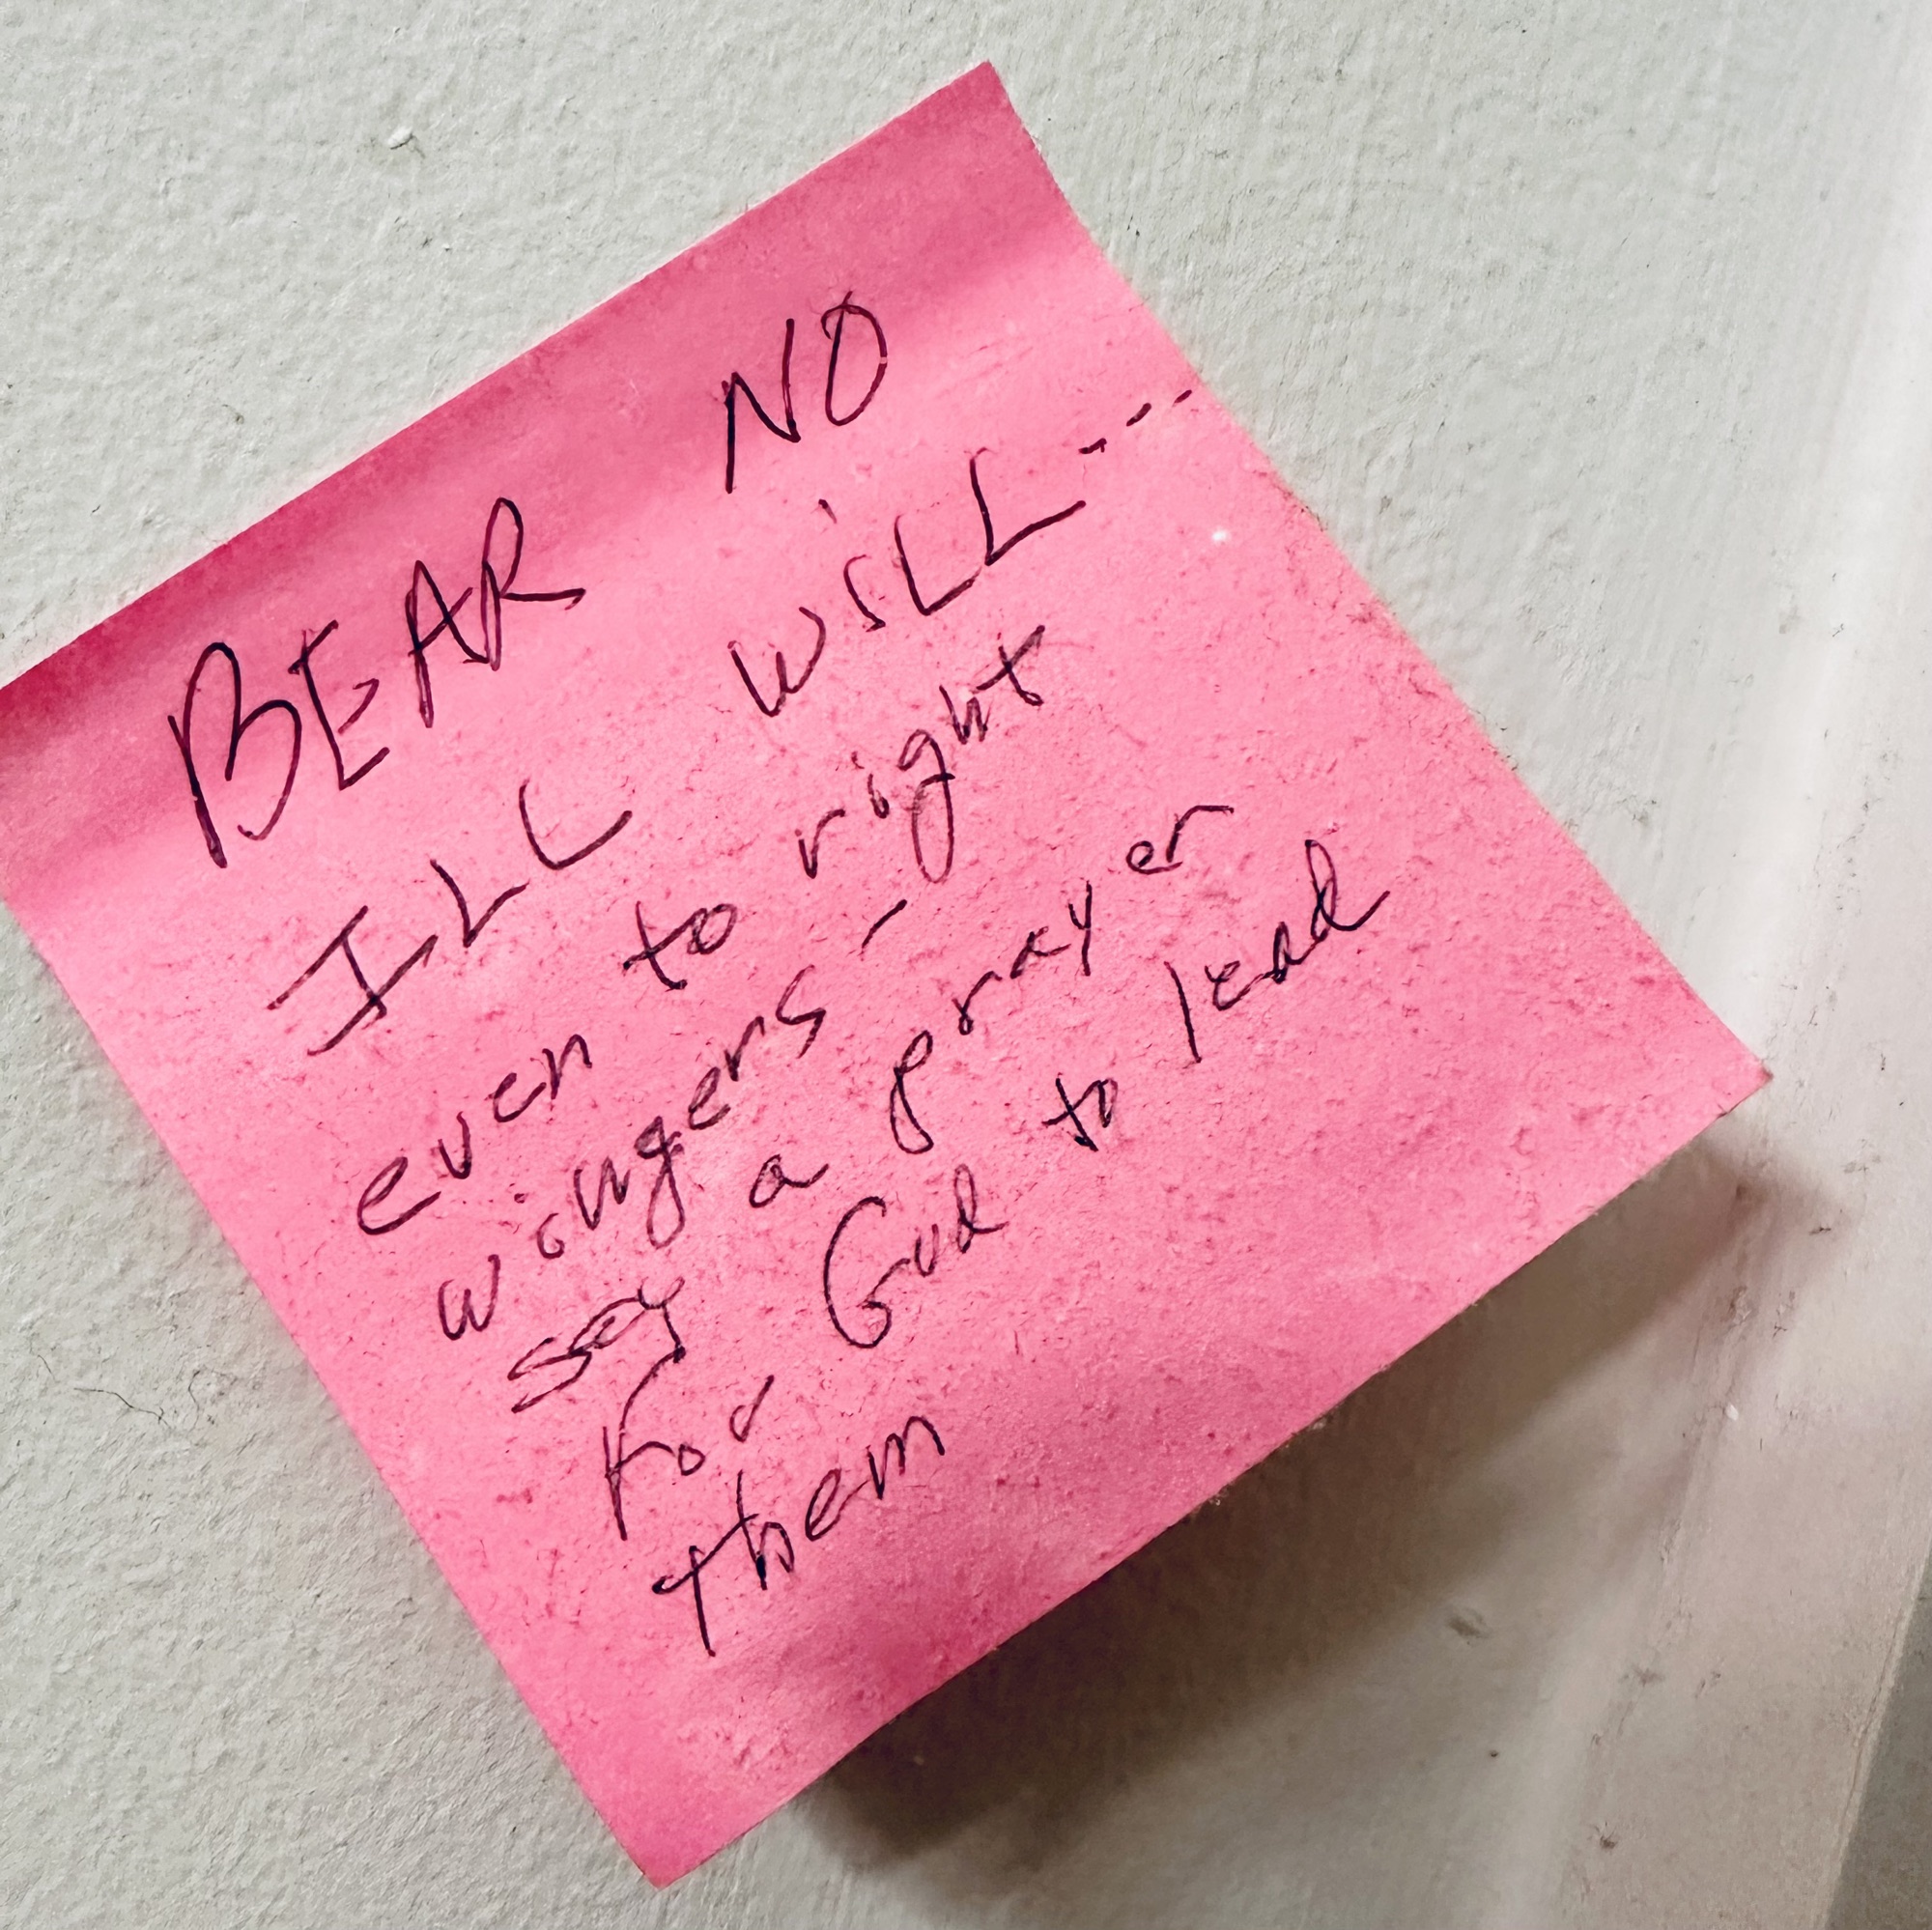 BEAR NO
ILL WiLL ---
even to right
wingers -
say a prayer
for God to lead
them